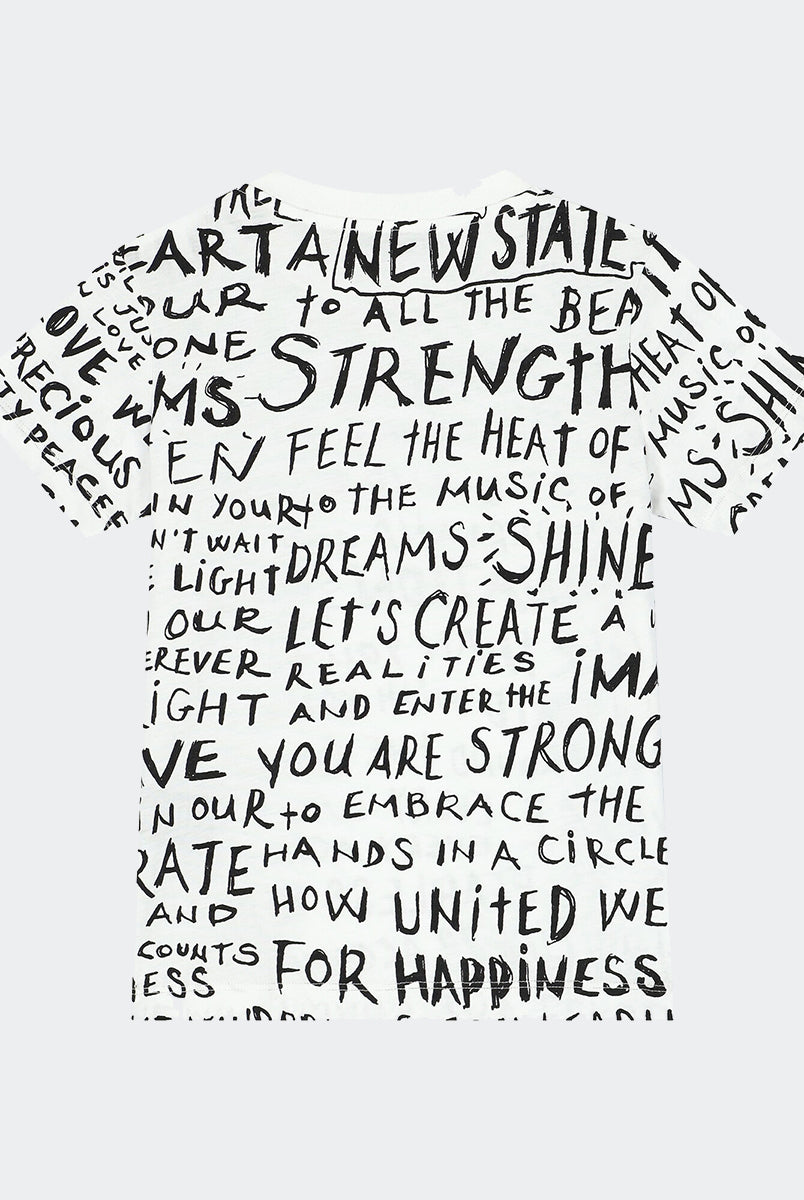 ART A NEW STATE
OUR to ALL THE BEA
ONE STRENGTH
MS
EN FEEL THE HEAT OF
IN YOUR to THE MUSIC OF
N'T WAIT DREAMS SHINE
LIGHT
OUR LET'S CREATE A
EREVER REALITIES IMA
IGHT AND ENTER THE
VE YOU ARE STRONG
IN OUR to EMBRACE THE
RATE HANDS IN A CIRCLE
AND HOW UNITED WE
COUNTS FOR HAPPINESS
ESS
IS JUS
LOVE
OVE W
RECIOUS
TY PEACEF
HEAT OF
MUSIC OF
MS SHIN